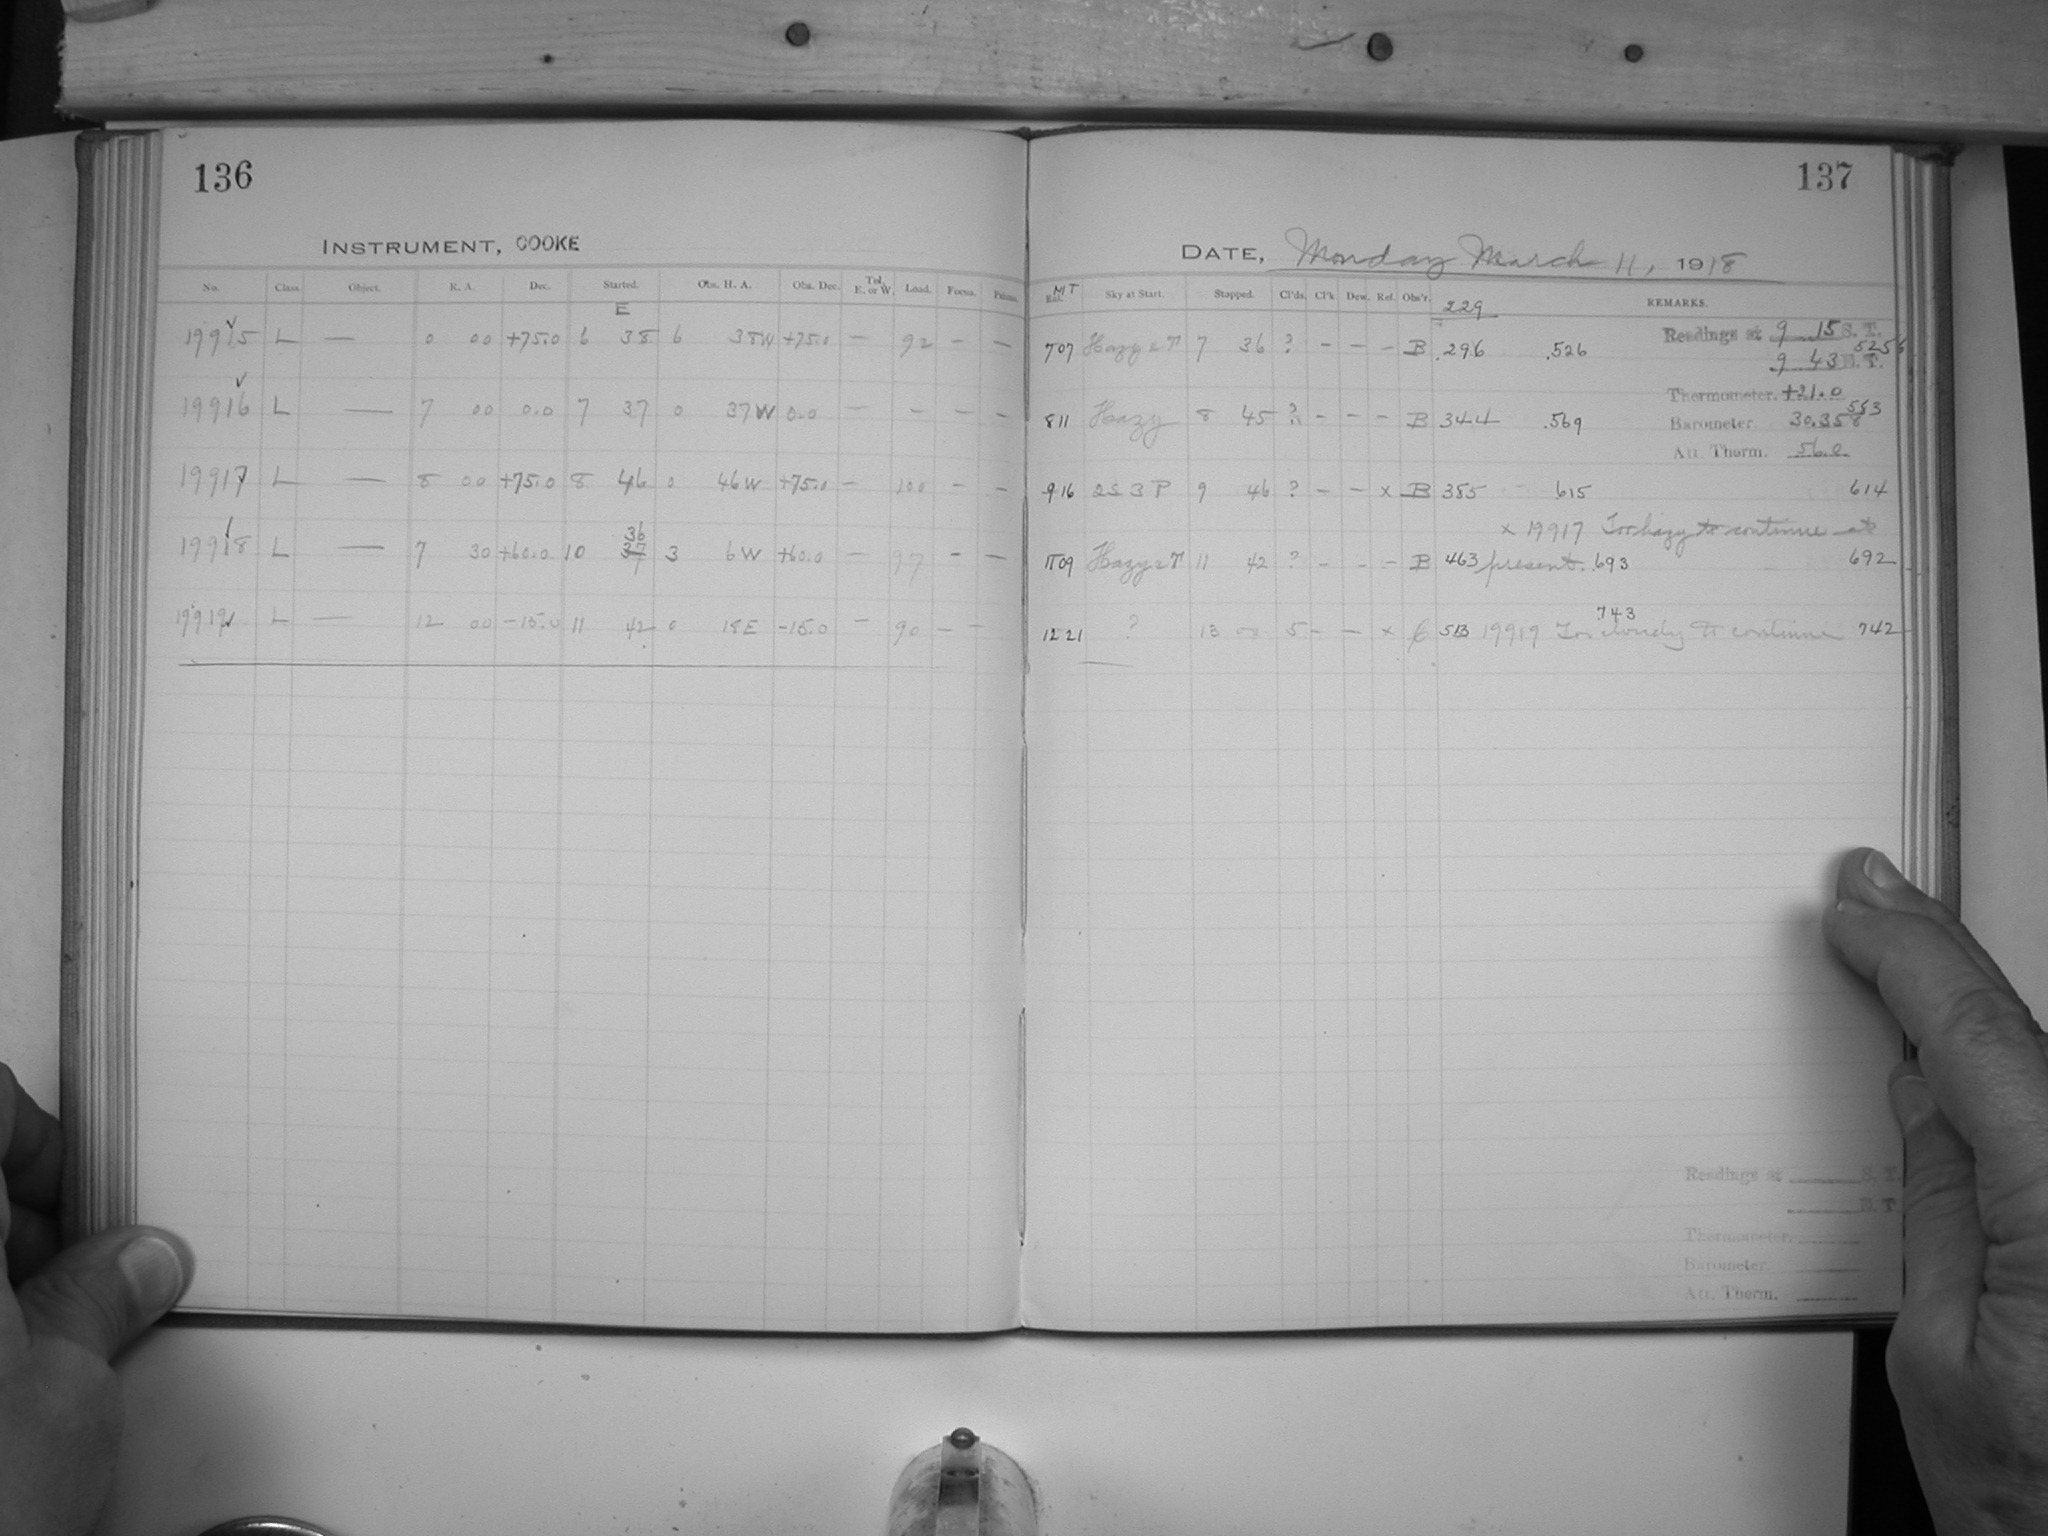 136
INSTRUMENT, COOKE
No. Class. Object. R. A. Dec. Started. Obs. H. A. Obs. Dec. Tel. E. or W. Load. Focus.
E
19915 L — 0 00 +75.0 6 38 6 38W +75.0 — 92 — —
19916 L — 7 00 0.0 7 37 0 37W 0.0 — — — —
19917 L — 8 00 +75.0 8 46 0 46W +75.0 — 100 — —
36
19918 L — 7 30 +60.0 10 37 3 6W +60.0 — 97 — —
19919 L — 12 00 -15.0 11 42 0 18E -15.0 — 90 — —
137
DATE, Monday March 11, 1918
MT Sky at Start. Stopped. Cl'ds. Cl'k Dew. Ref. Obs'r. 229 REMARKS.
707 Hazy 7 36 ? — — — B .296 .526
Readings at 9 15 S. T.
9 43 E. T.
Thermometer. +21.0
811 Hazy 8 45 ? — — — B 344 .569 553
Barometer 30.358
Att. Therm. 56.0
916 2S 3P 9 46 ? — — x B 385 615 614
x 19917 Too hazy to continue at
1109 Hazy 11 42 ? — — — B 463 present. .693 692
743
1221 ? 13 00 5 — — x 513 19919 Too cloudy to continue 742
Readings at S. T.
E. T.
Thermometer.
Barometer.
Att. Therm.